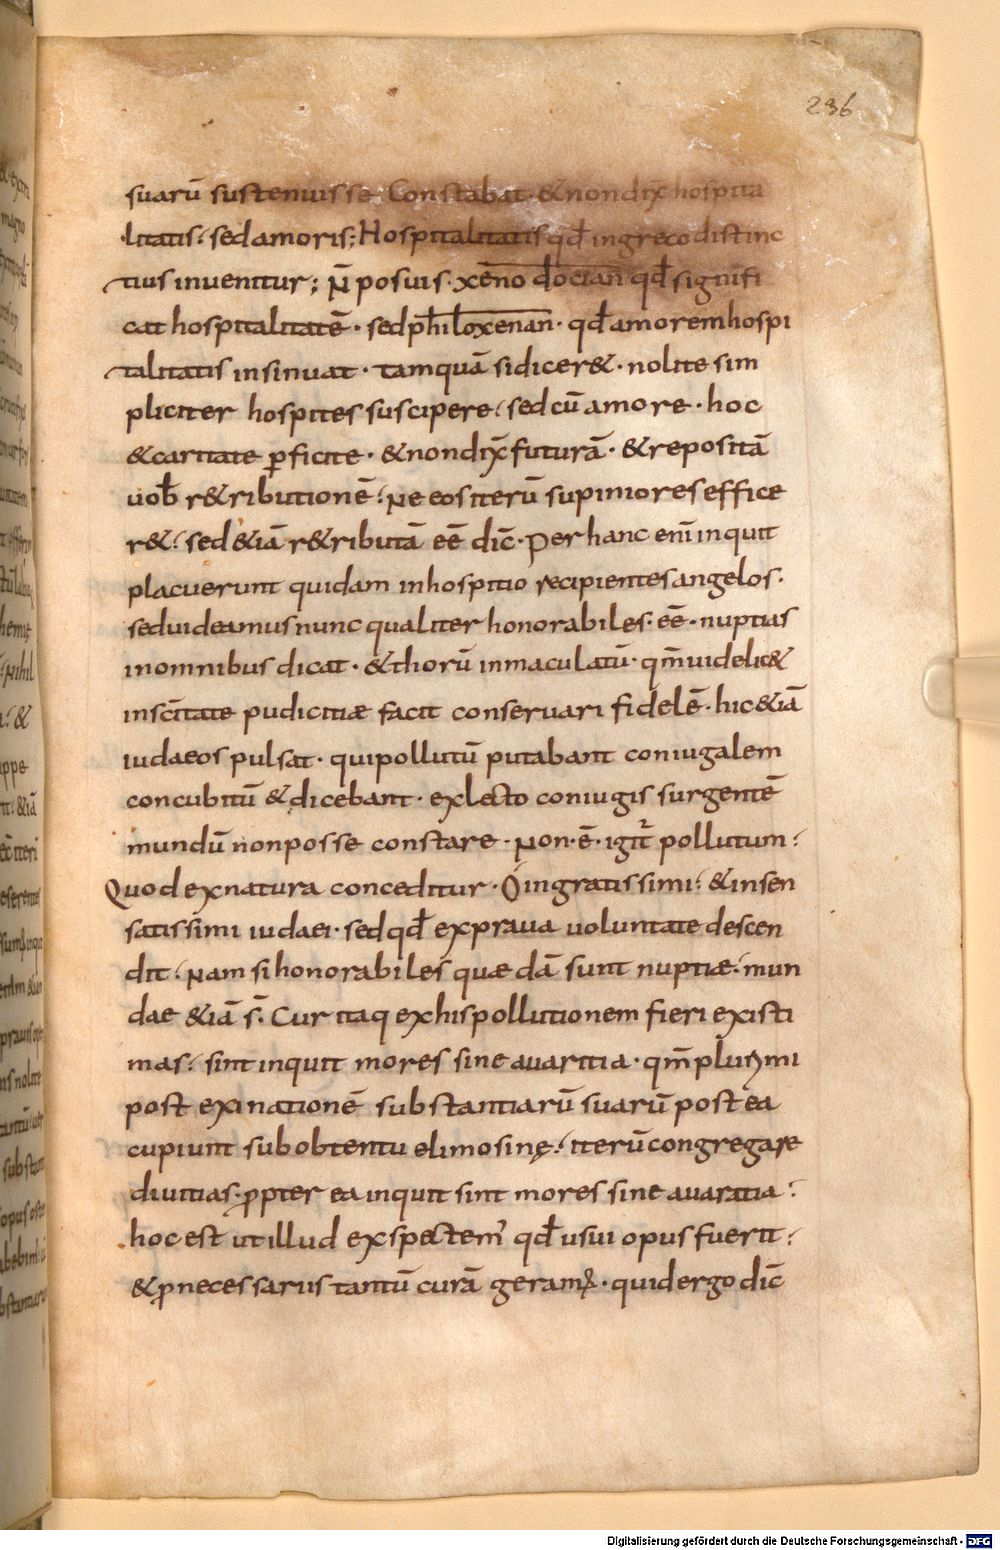 236
suarū sustenuisse Constabat · & non dix̄ hospita
litatis · sed amoris; Hospitalitatis qđ in greco distinc
tius inuenitur; N̄ posuis · xēno docian qđ signifi
cat hospitalitatē · sed philoxenian · qđ amorem hospi
talitatis insinuat · tamquā si dicer& · nolite sim
pliciter hospites suscipere · sed cū amore · hoc
& caritate ꝑficite · & non dix̄ futurā · & repositā
uoƀ r&ributionē · Ne eos iterū supiniores effice
r& · sed &iā r&ributā eē dic̄ · Per hanc enī inquit
placuerunt quidam in hospitio recipientes angelos ·
sed uideamus nunc qualiter honorabiles · eē · nuptias
in omnibus dicat · & thorū inmaculatū · qm̄ uidelic&
in sc̄itate pudicitiæ facit conseruari fidelē · hic &iā
iudaeos pulsat · qui pollutū putabant coniugalem
concubitū & dicebant · ex lecto coniugis surgentē
mundū non posse constare · Non · ē · igit̄ pollutum ·
Quod ex natura conceditur · O ingratissimi · & insen
satissimi iudaei · sed qđ ex praua uoluntate descen
dit · Nam si honorabiles quædā sunt nuptiæ · mun
dae &iā s̄ · Cur itaq ex his pollutionem fieri existi
mas · sint inquit mores sine auaritia · qm̄ pluꝛimi
post exinationē substantiarū suarū post ea
cupiunt sub obtentu elimosinę · iterū congregare
diuitias · ꝓpter ea inquit sint mores sine auaritia ·
hoc est ut illud exspectem' qđ usui opus fuerit ·
& ꝓ necessariis tantū curā geram' · quid ergo dic̄
Digitalisierung gefördert durch die Deutsche Forschungsgemeinschaft - DFG